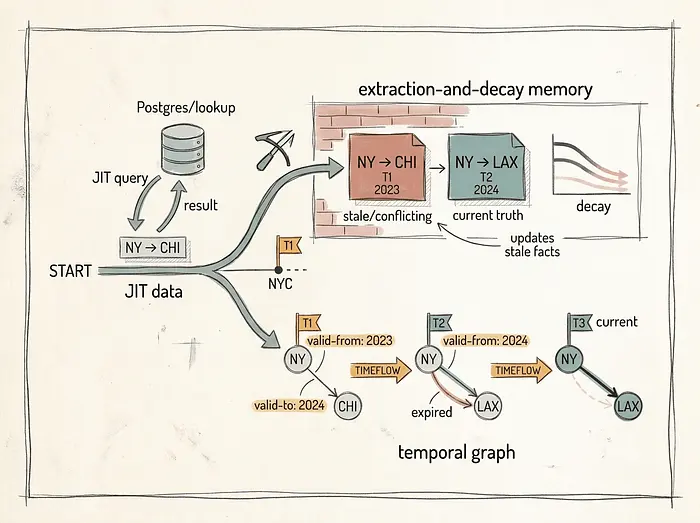 extraction-and-decay memory
Postgres/lookup
JIT query
result
NY → CHI
START
JIT data
T1
NYC
NY → CHI
T1
2023
stale/conflicting
NY → LAX
T2
2024
current truth
decay
updates
stale facts
T1
NY
valid-from: 2023
valid-to: 2024
CHI
TIMEFLOW
T2
NY
valid-from: 2024
expired
LAX
TIMEFLOW
T3 current
NY
LAX
temporal graph